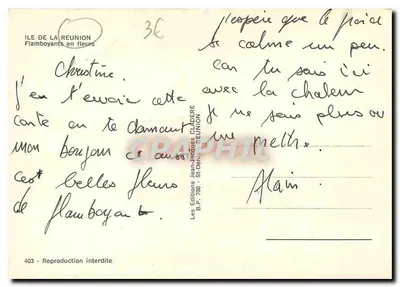 ILE DE LA REUNION
Flamboyants en fleurs
3€
Christine.
J'en t'envoie cette
carte en te donnant
mon bonjour et aussi
ces belles fleurs
de flamboyant.
j'espère que le froid
se calme un peu.
car tu sais ici
avec la chaleur
je ne sais plus ou
me mettre.
Alain.
Les Editions Jean-Jacques CLADERE
B.P. 700 - St-Denis REUNION
403 - Reproduction interdite